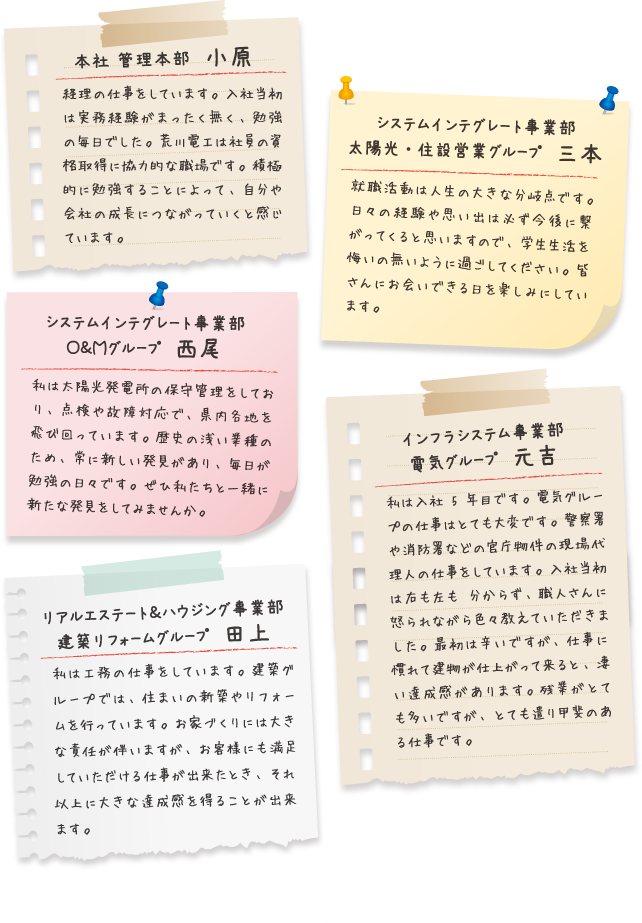 本社 管理本部 小原
経理の仕事をしています。入社当初
は実務経験がまったく無く、勉強
の毎日でした。荒川電工は社員の資
格取得に協力的な職場です。積極
的に勉強することによって、自分や
会社の成長につながっていくと感じ
ています。
システムインテグレート事業部
太陽光・住設営業グループ 三本
就職活動は人生の大きな分岐点です。
日々の経験や思い出は必ず今後に繋
がってくると思いますので、学生生活を
悔いの無いように過ごしてください。皆
さんにお会いできる日を楽しみにしてい
ます。
システムインテグレート事業部
O&Mグループ 西尾
私は太陽光発電所の保守管理をしてお
り、点検や故障対応で、県内各地を
飛び回っています。歴史の浅い業種の
ため、常に新しい発見があり、毎日が
勉強の日々です。ぜひ私たちと一緒に
新たな発見をしてみませんか。
インフラシステム事業部
電気グループ 元吉
私は入社 5 年目です。電気グルー
プの仕事はとても大変です。警察署
や消防署などの官庁物件の現場代
理人の仕事をしています。入社当初
は右も左も 分からず、職人さんに
怒られながら色々教えていただきま
した。最初は辛いですが、仕事に
慣れて建物が仕上がって来ると、凄
い達成感があります。残業がとて
も多いですが、とても遣り甲斐のあ
る仕事です。
リアルエステート&ハウジング事業部
建築リフォームグループ 田上
私は工務の仕事をしています。建築グ
ループでは、住まいの新築やリフォー
ムを行っています。お家づくりには大き
な責任が伴いますが、お客様にも満足
していただける仕事が出来たとき、それ
以上に大きな達成感を得ることが出来
ます。